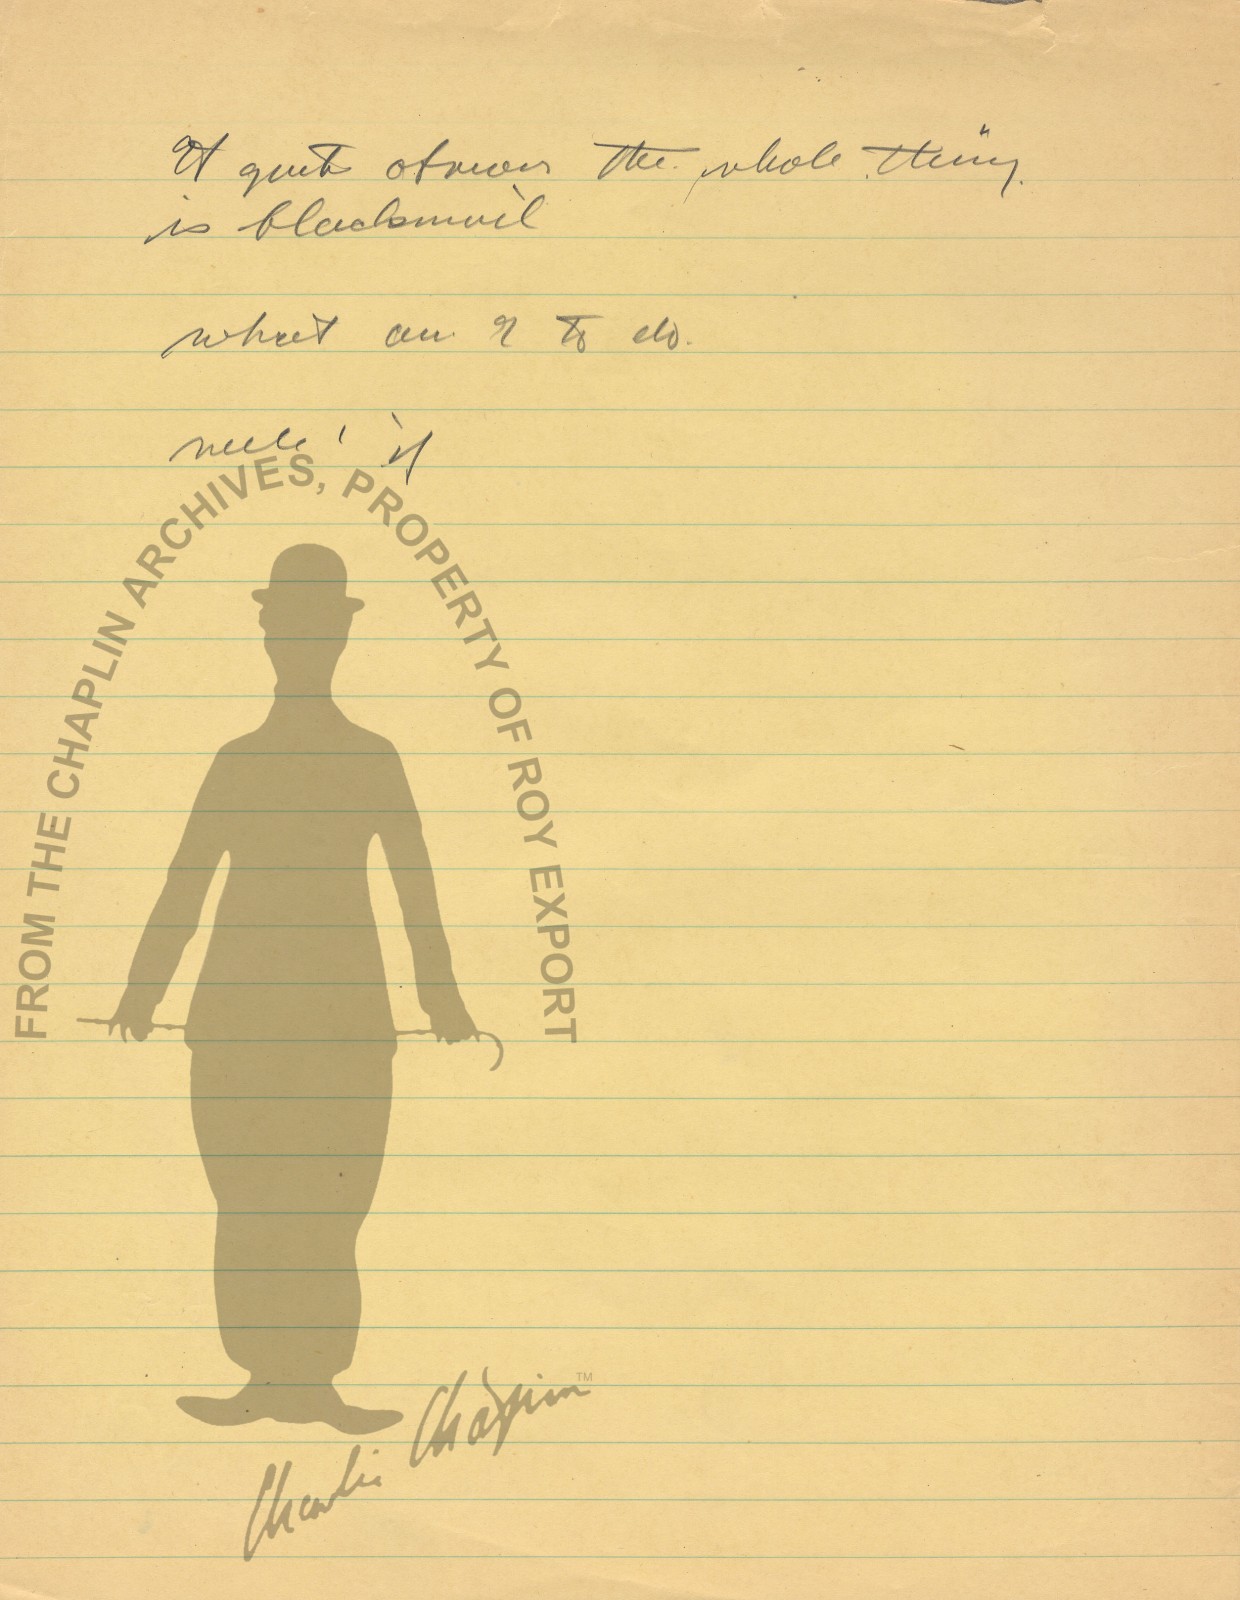 It quite obvious the whole thing
is blackmail
what am I to do.
if
FROM THE CHAPLIN ARCHIVES, PROPERTY OF ROY EXPORT
Charlie Chaplin TM